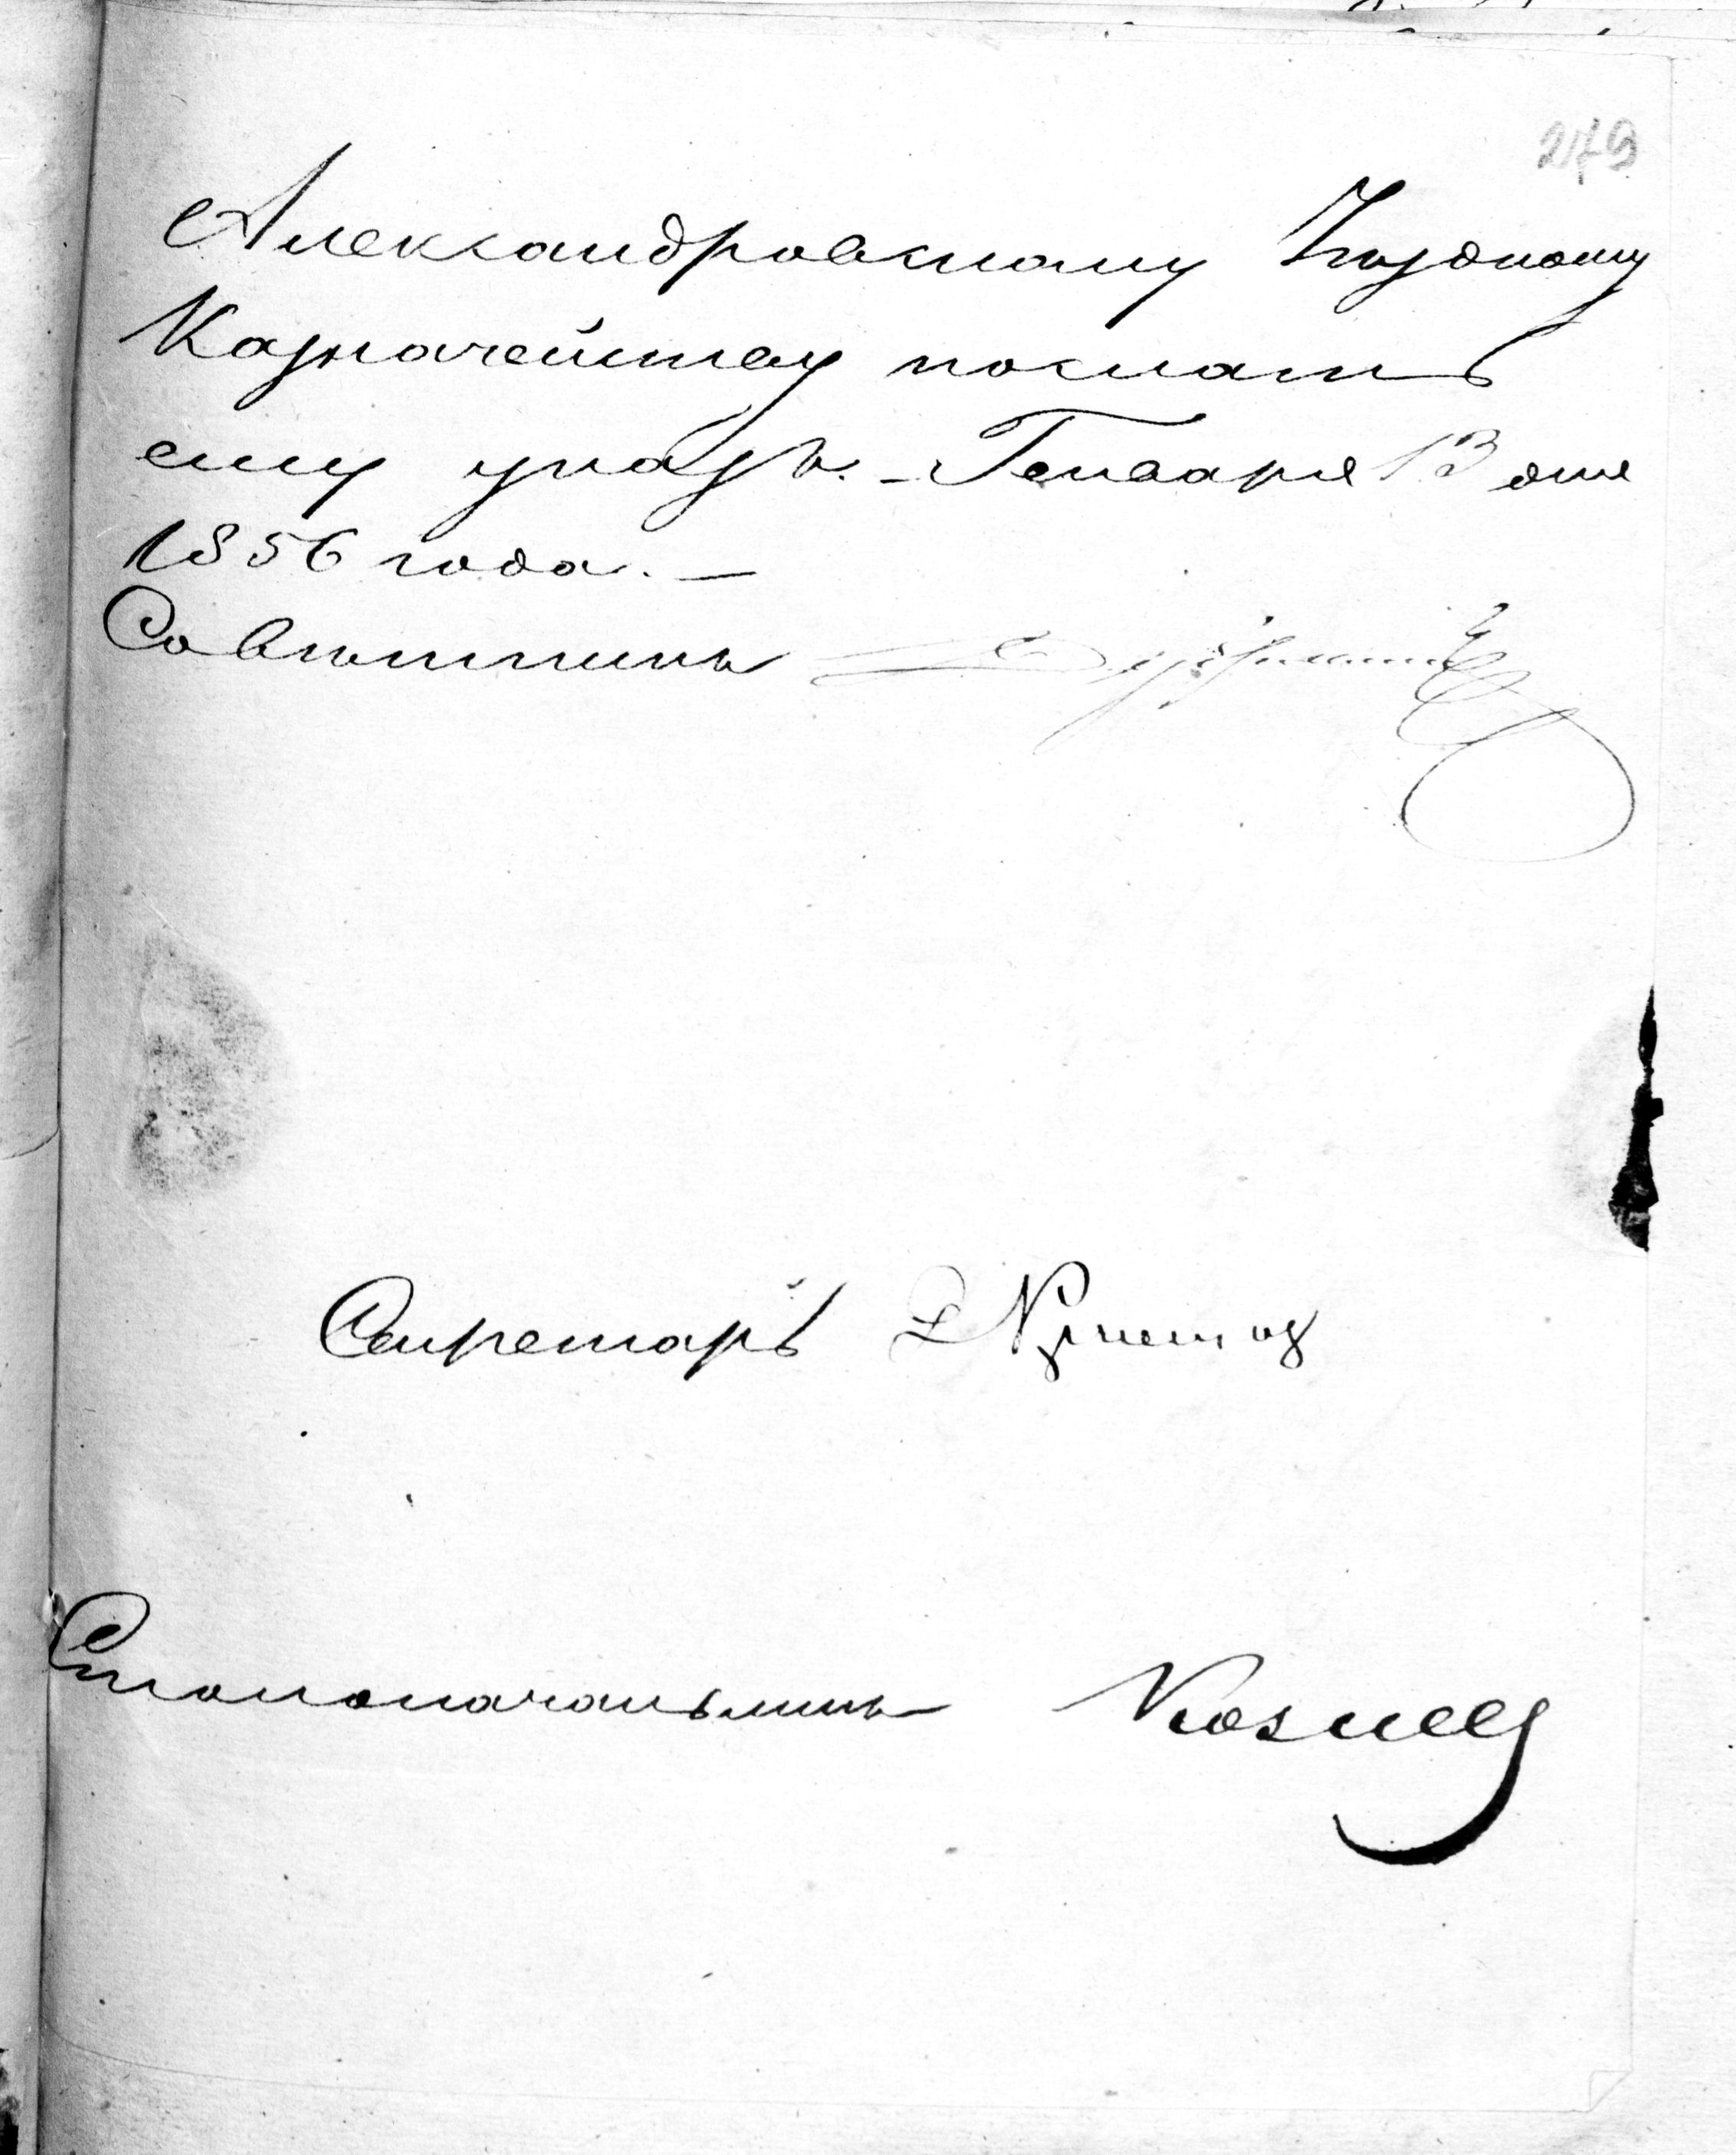 279
Александровскому Уѣздному
Казначейству послать
ему указъ. - Генваря 13 дня
1856 года. —
Совѣтникъ
Секретарь
Столоначальникъ